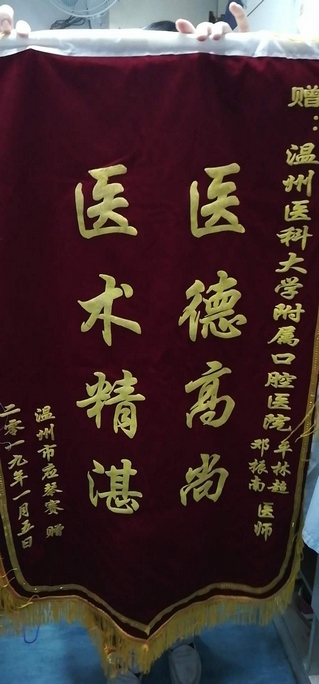 赠：温州医科大学附属口腔医院
牟林赵
邓振南
医师
医德高尚
医术精湛
温州市应琴赛 赠
二零一九年一月五日